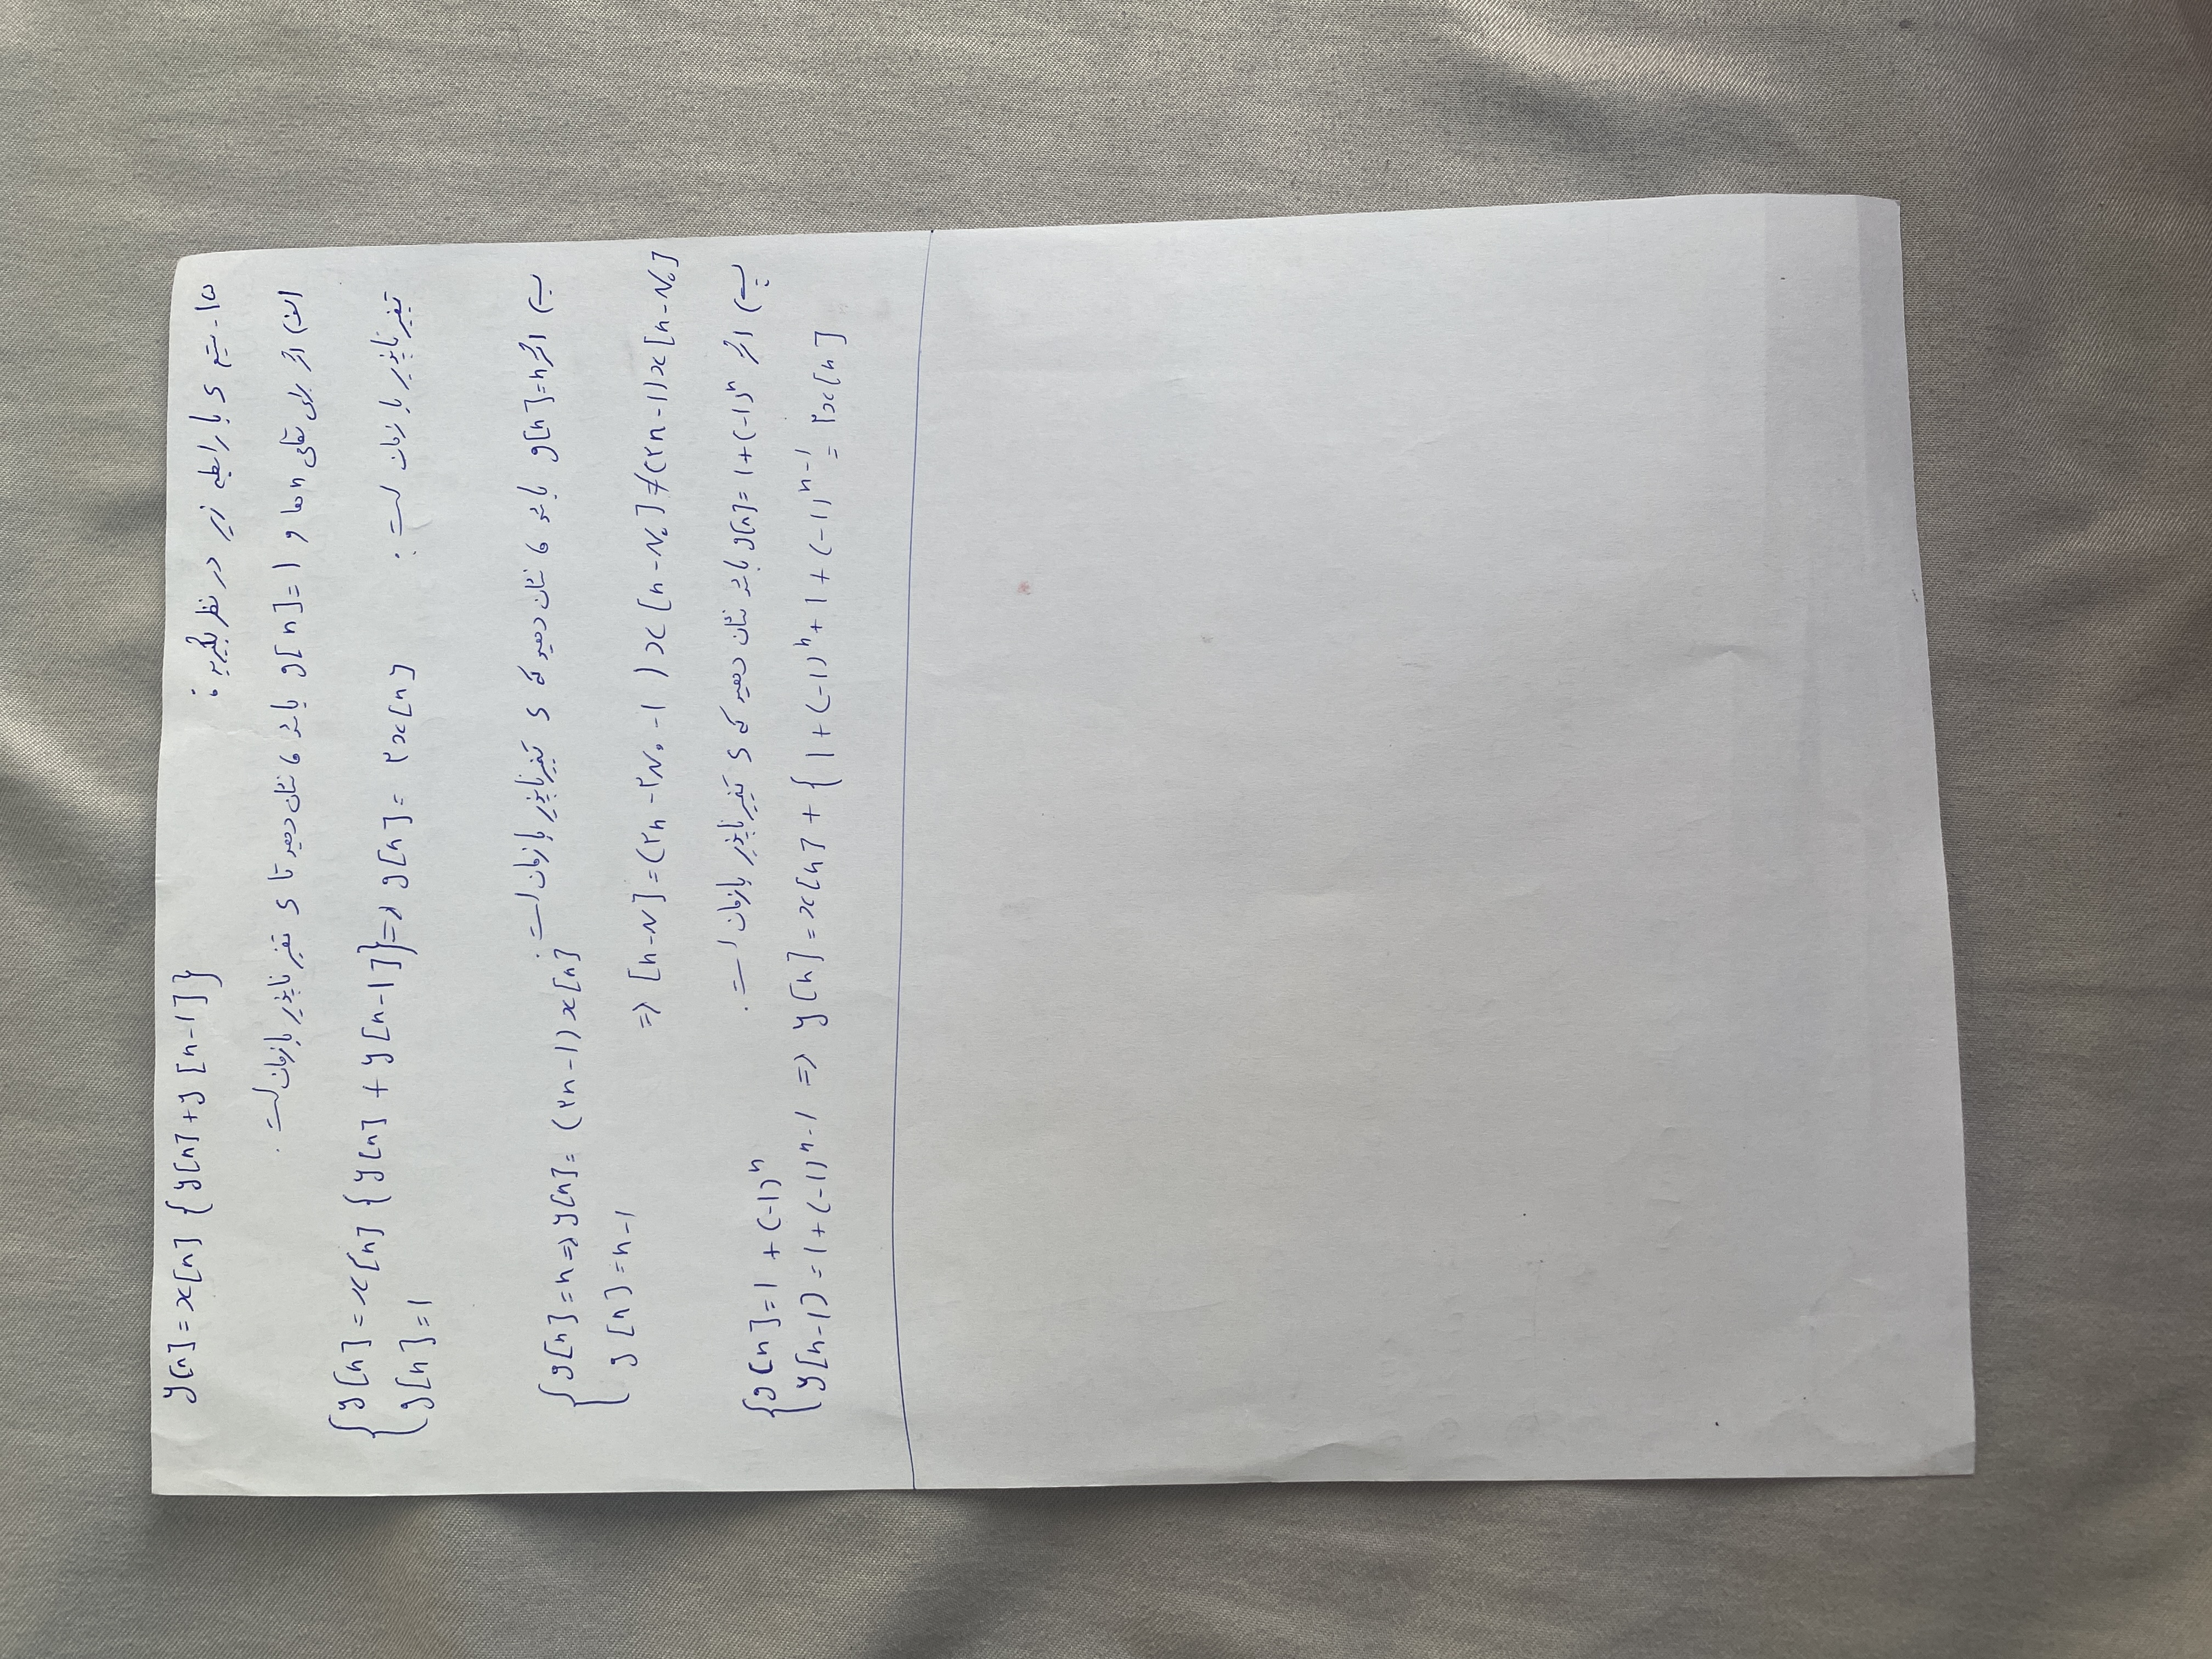 ۱۵- سیستم S با رابطه زیر در نظر بگیرید: y[n] = x[n] {y[n] + y[n-1]}
الف) اگر برای تمامی nها و g[n] = 1 باشد، نشان دهید تا S تغیر ناپذیر با زمان است.
تغیر ناپذیر با زمان است:
{y[n] = x[n] {y[n] + y[n-1]} => g[n] = ۲x[n]
g[n] = 1
ب) اگر g[n]=n باشد، نشان دهید که S تغیر ناپذیر با زمان است.
{g[n] = n => y[n] = (۲n-1) x[n]
g[n] = n-1
=> [n-N] = (۲n - ۲N₀ - 1) x[n-N₀] ≠ (۲n-1)x[n-N₀]
پ) اگر g[n] = 1+(-1)ⁿ باشد نشان دهید که S تغیر ناپذیر بازمان است.
{g[n] = 1 + (-1)ⁿ
y[n-1) = 1+(-1)ⁿ⁻¹ => y[n] = x[n] + { 1+(-1)ⁿ + 1 + (-1)ⁿ⁻¹ = ۲x[n]